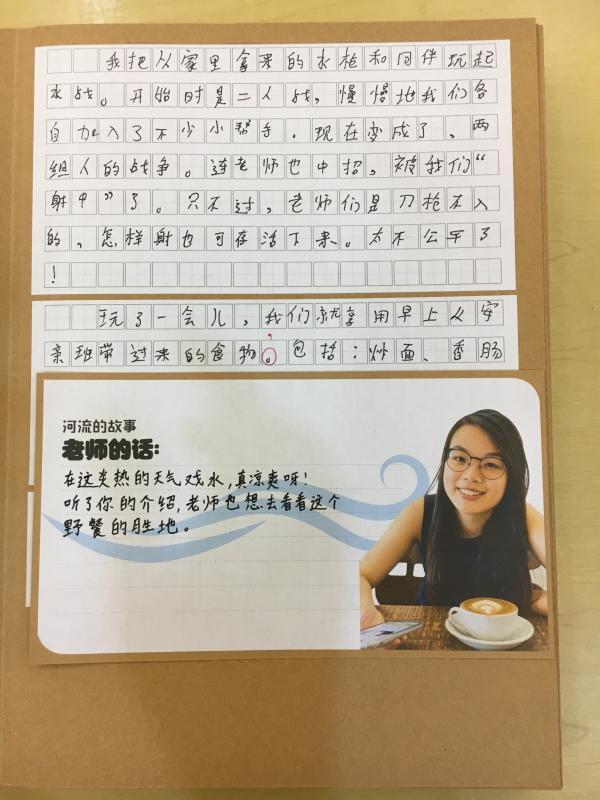 我把从家里拿来的水枪和同伴玩起
水战。开始时是二人战，慢慢地我们各
自加入了不少小帮手，现在变成了、两
组人的战争。连老师也中招，被我们“
射中”了。只不过，老师们是刀枪不入
的，怎样射也可存活下来。太不公平了
！
玩了一会儿，我们就享用早上从安
亲班带过来的食物。包括：炒面、香肠
河流的故事
老师的话：
在这炎热的天气戏水，真凉爽呀！
听了你的介绍，老师也想去看看这个
野餐的胜地。